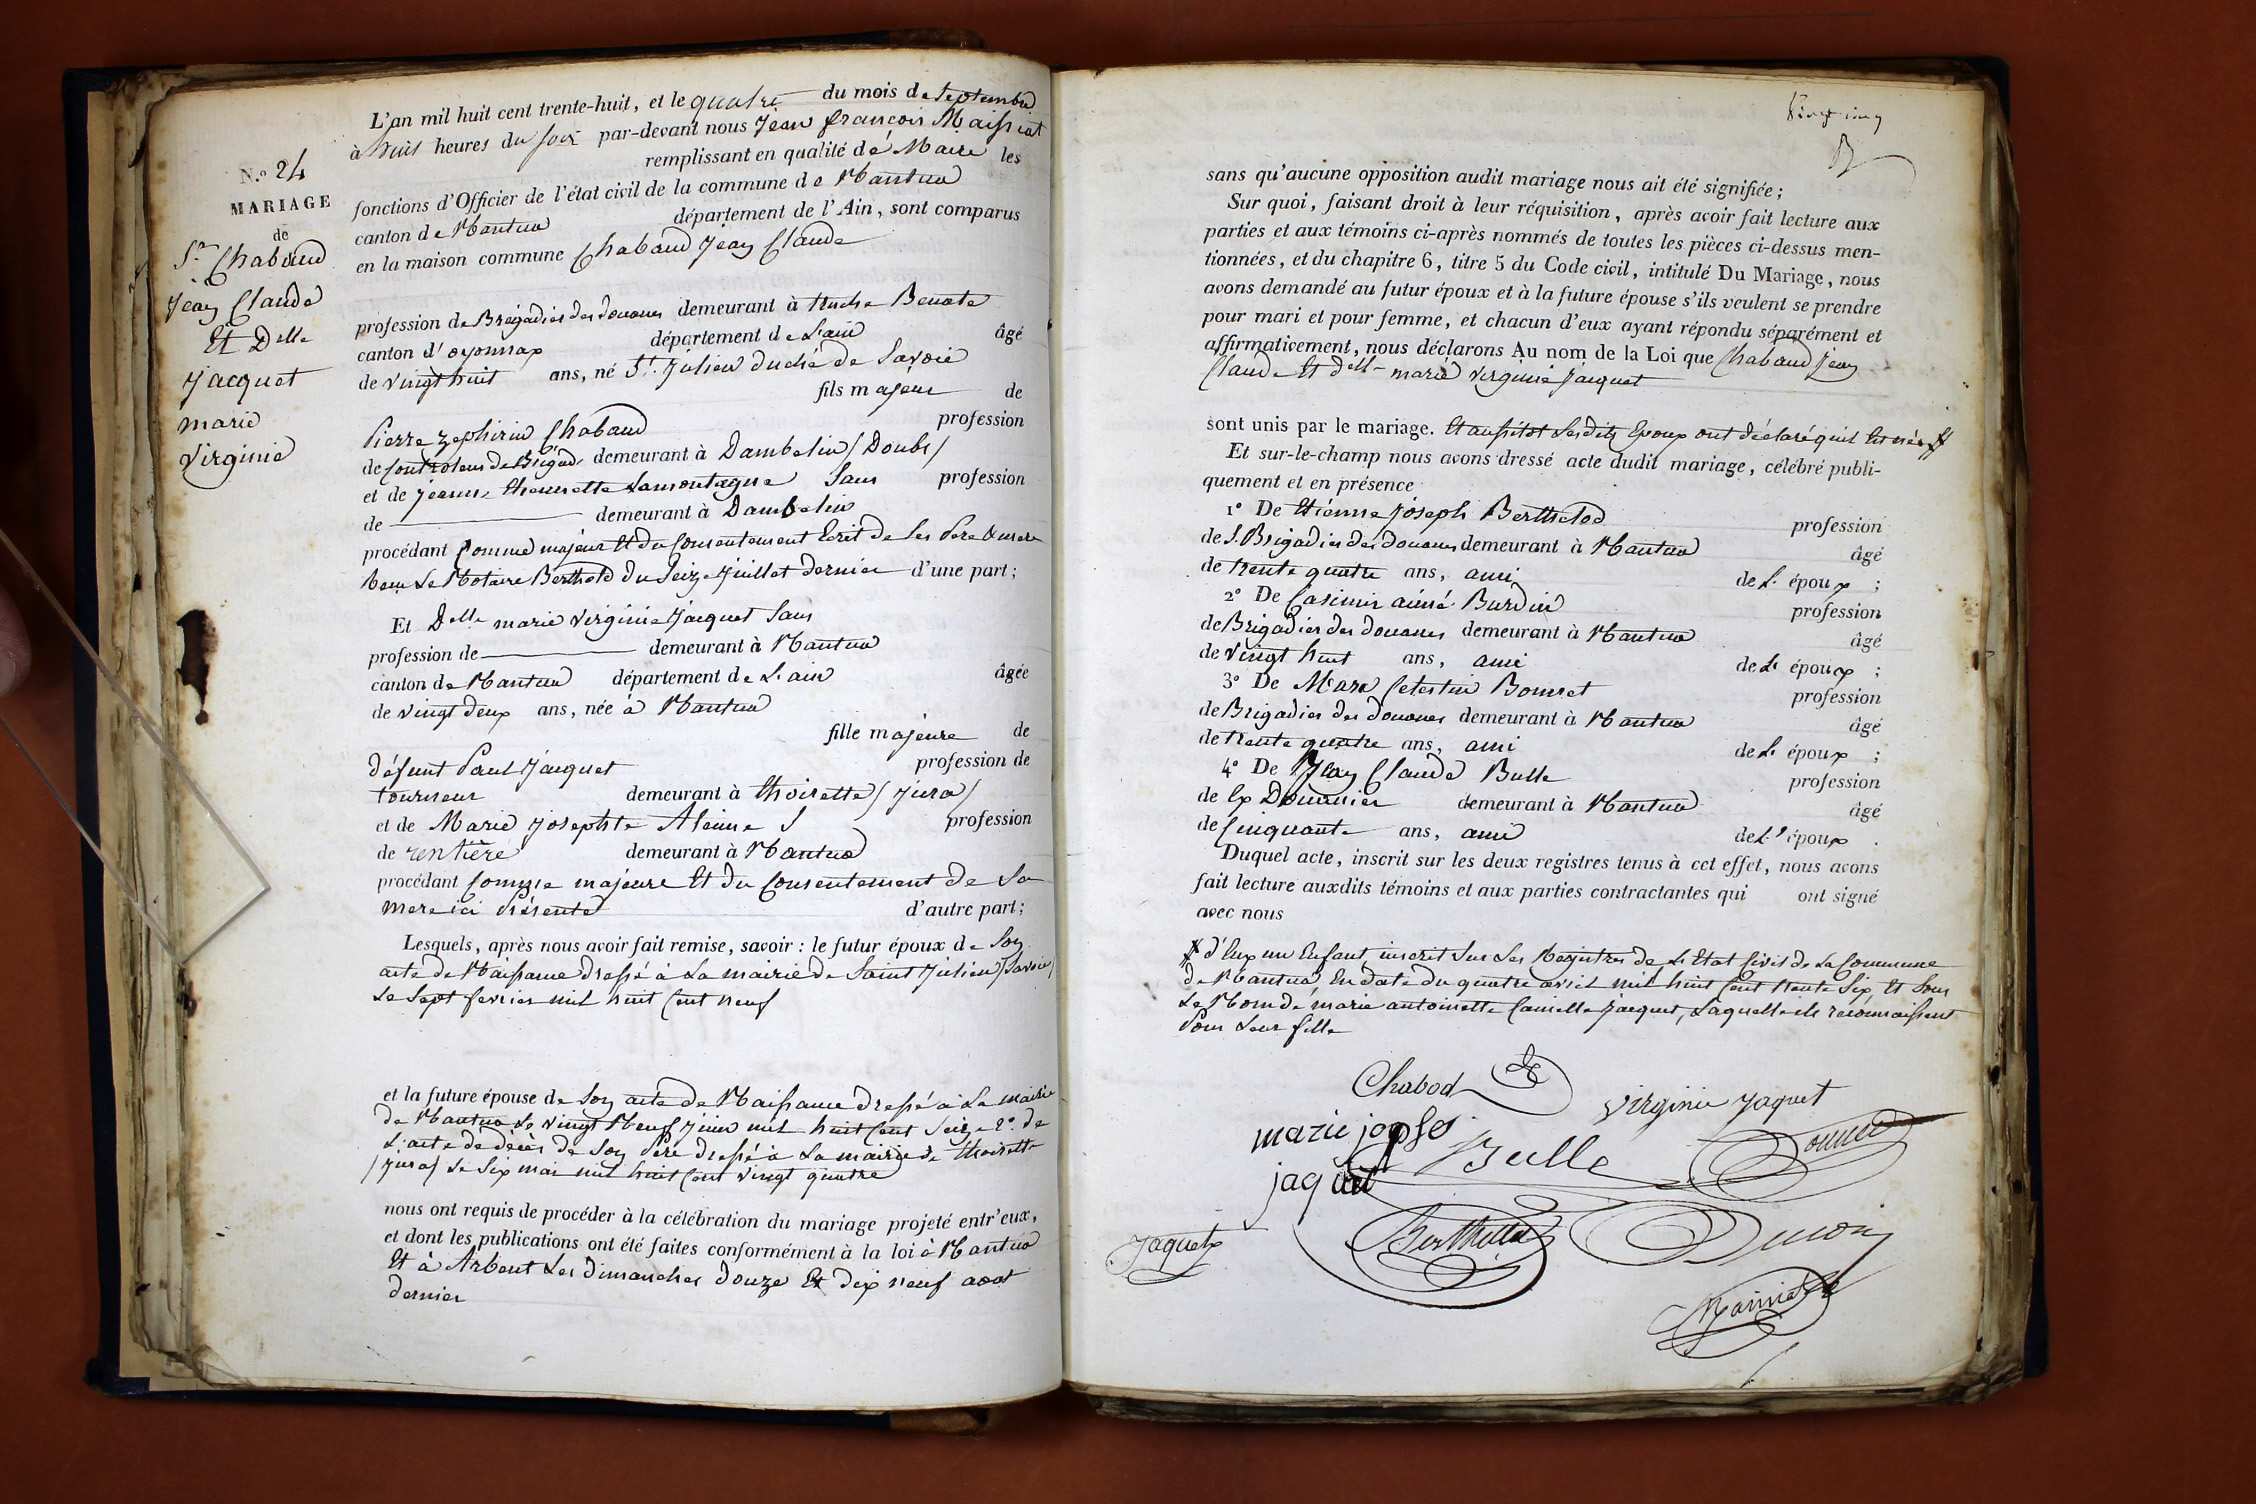 N.º 24
MARIAGE
de
Sr. Chabaud
Jean Claude
Et Delle
Jacquet
marie
Virginie
L'an mil huit cent trente-huit, et le quatre du mois de Septembre
à huit heures du soir par-devant nous Jean françois Maissiat
remplissant en qualité de Maire les
fonctions d'Officier de l'état civil de la commune de Nantua
canton de Nantua département de l'Ain, sont comparus
en la maison commune Chabaud Jean Claude
profession de Brigadier des douanes demeurant à
canton d'oyonnax département de L'ain âgé
de vingt huit ans, né St. Julien duché de Savoie
fils majeur de
Pierre Zephirin Chabaud profession
de Controleur de Brigade demeurant à Dambelin (Doubs)
et de jeanne thomsette Lamontagne Sans profession
de demeurant à Dambelin
procédant Comme majeur Et du Consentement Ecrit de Ses Pere & mere
Le Notaire Berthold du Seize Juillet dernier d'une part;
Et Delle marie virginie Jacquet Sans
profession de demeurant à Nantua
canton de Nantua département de L'ain âgée
de vingt deux ans, née à Nantua
fille majeure de
défunt Paul Jacquet profession de
tourneur demeurant à thoirette (jura)
et de Marie josephte profession
de rentière demeurant à Nantua
procédant Comme majeure Et du Consentement de Sa
mere ici Présente d'autre part;
Lesquels, après nous avoir fait remise, savoir : le futur époux de Son
acte de Naissance dressé à La mairie de Saint Julien (Savoie)
Le Sept fevrier mil huit Cent neuf
et la future épouse de Son acte de Naissance dressé à La mairie
de Nantua Le vingt Neuf juin mil huit Cent Seize 2º. de
L'acte de décès de Son Père dressé à La mairie de thoirette
(jura) Le Six mai mil huit Cent vingt quatre
nous ont requis de procéder à la célébration du mariage projeté entr'eux,
et dont les publications ont été faites conformément à la loi à Nantua
Et à Arbent Les dimanches douze Et dix neuf aout
dernier
Vingt cinq
sans qu'aucune opposition audit mariage nous ait été signifiée;
Sur quoi, faisant droit à leur réquisition, après avoir fait lecture aux
parties et aux témoins ci-après nommés de toutes les pièces ci-dessus men-
tionnées, et du chapitre 6, titre 5 du Code civil, intitulé Du Mariage, nous
avons demandé au futur époux et à la future épouse s'ils veulent se prendre
pour mari et pour femme, et chacun d'eux ayant répondu séparément et
affirmativement, nous déclarons Au nom de la Loi que Chabaud Jean
Claude Et delle marie virginie Jacquet
sont unis par le mariage. Et aussitot Lesdits Epoux ont déclaré quil Est né
Et sur-le-champ nous avons dressé acte dudit mariage, célébré publi-
quement et en présence
1º De Etienne Joseph Berthelod profession
de S. Brigadier des douanes demeurant à Nantua âgé
de trente quatre ans, ami de L' époux ;
2º De Casimir aimé Burdin profession
de Brigadier des douanes demeurant à Nantua âgé
de vingt huit ans, ami de L' époux ;
3º De Marc Celestin Bonnet profession
de Brigadier des douanes demeurant à Nantua âgé
de trente quatre ans, ami de L' époux ;
4º De Jean Claude Bulle profession
de Ex Douanier demeurant à Nantua âgé
de Cinquante ans, ami de L' époux .
Duquel acte, inscrit sur les deux registres tenus à cet effet, nous avons
fait lecture auxdits témoins et aux parties contractantes qui ont signé
avec nous
d'Eux un Enfant inscrit Sur Les Registres de L'Etat Civil de La Commune
de Nantua, En date du quatre avril mil huit Cent trente Six Et Sous
Le Nom de marie antoinette Camille Jacquet, Laquelle ils reconnaissent
Pour Leur fille
Chabod
virginie jaquet
marie
Bulle
Bonnet
Jaquet
Berthelod
Maissiat